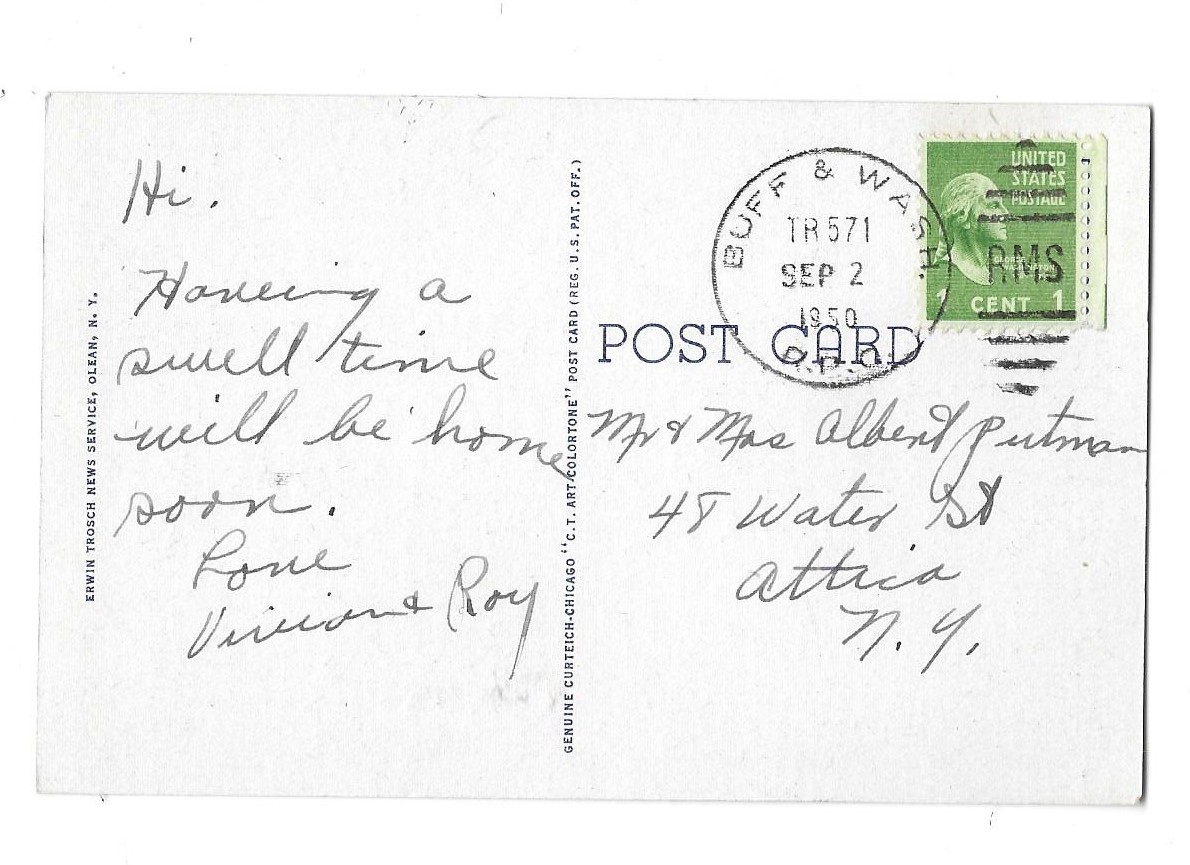 Hi.
Haveing a
swell time
will be home
soon.
Love
Vivian & Roy
ERWIN TROSCH NEWS SERVICE, OLEAN, N. Y.
GENUINE CURTEICH-CHICAGO "C.T. ART-COLORTONE" POST CARD (REG. U.S. PAT. OFF.)
BUFF & WASH.
TR 571
SEP 2
1950
R.P.O.
UNITED
STATES
POSTAGE
RMS
GEORGE
WASHINGTON
1 CENT 1
POST CARD
Mr & Mrs Albert Putman
48 Water St
Attica
N. Y.